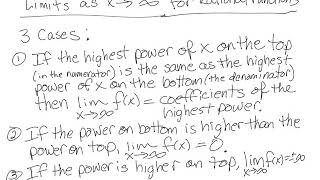 Limits as x→∞ for Rational Functions
3 Cases:
① If the highest power of x on the top
(in the numerator) is the same as the highest
power of x on the bottom (the denominator)
then lim x→∞ f(x) = coefficients of the
highest power.
② If the power on bottom is higher than the
power on top, lim x→∞ f(x) = 0.
③ If the power is higher on top, lim x→∞ f(x) = ±∞